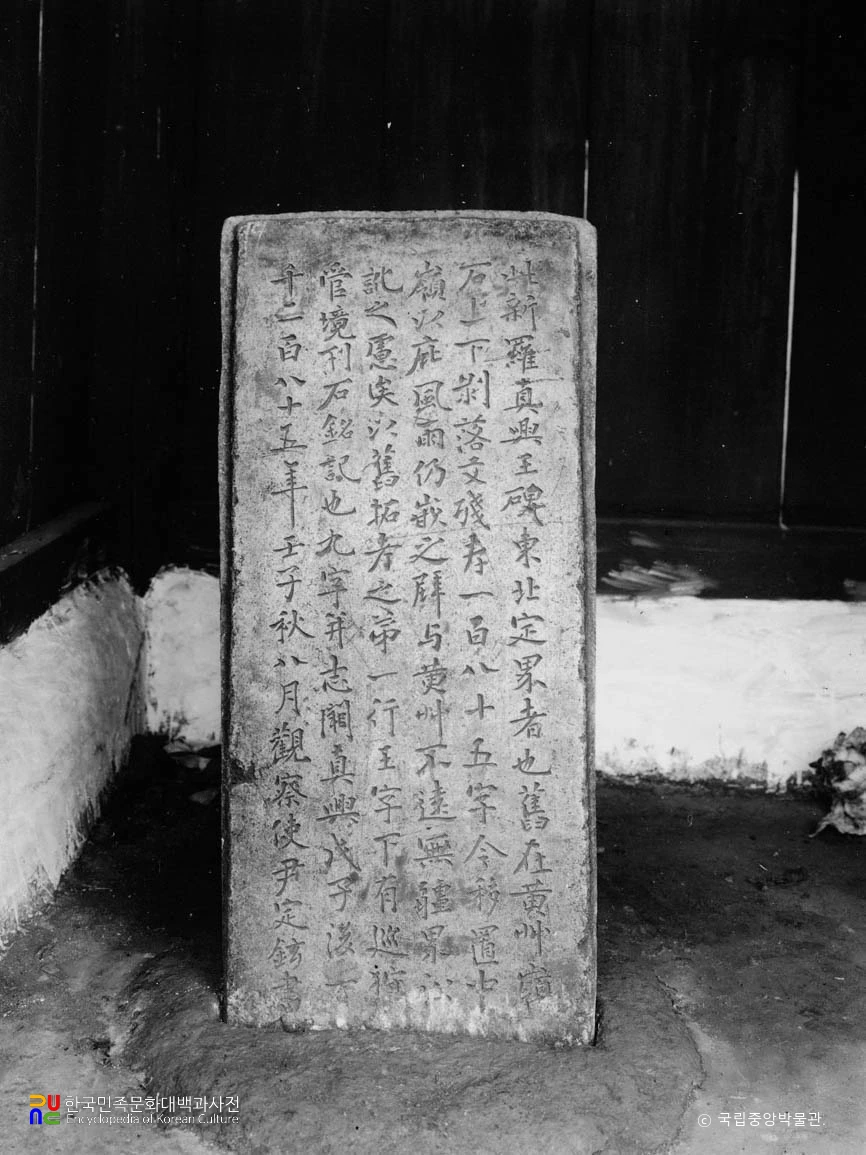 此新羅真興王碑東北定界者也舊在黃艸嶺
石上一下剝落文殘存一百八十五字今移置中
嶺以庇風雨仍嵌之壁与黃艸不遠無疆界沿
訛之慮矣以舊拓考之第一行王字下有巡狩
管境刊石銘記也九字并志闕真興戊子後一
千二百八十五年壬子秋八月觀察使尹定鉉書
한국민족문화대백과사전
Encyclopedia of Korean Culture
© 국립중앙박물관